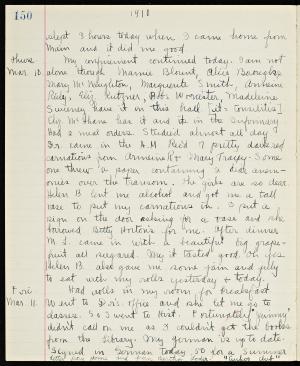 150
1910
slept 3 hours today when I came home from
Main and it did me good
Thurs. Mar. 10. My confinement continued today. I am not
alone though Mamie Blount, Alice
Mary McNaughton, Marguerite Smith, Anneine
Kelly, Worcester, Madeline
Sweeney have it on this hall [it = tonsilitis]
McShane has it and is in the Infirmary
Had 2 meal orders. Studied almost all day
Dr. came in the A.M. Rec'd 7 pretty
carnations from Anneine R + Mary Tracy. Some
one threw a paper containing 2
over the transom. The girls are so dear
Helen B lent me alcohol and got me a tall
vase to put my carnations in. I put a
sign on the door asking for a vase and she
borrowed Betty Horton's for me. After dinner
M. L. came in with a beautiful big grape-
fruit all sugared. My it tasted good. Oh yes
Helen B also gave me some jam and jelly
to eat with my rolls yesterday + today.
Fri. Mar. 11. Had rolls in my room for breakfast
Went to Dr's. Office and she let me go to
classes. So I went to Hist. Fortunately "Jimmy"
didn't call on me as I couldn't get the books
from the library. My German is up to date.
Signed in German today so for a Summer